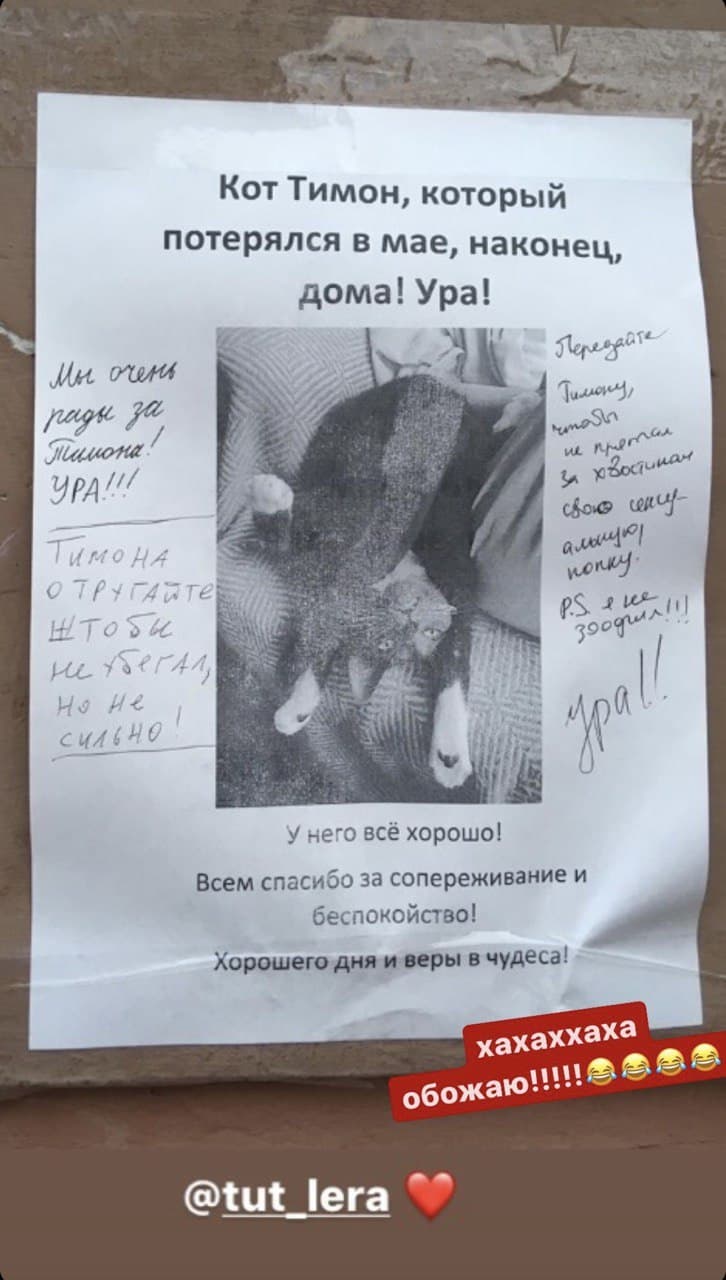 Кот Тимон, который
потерялся в мае, наконец,
дома! Ура!
Мы очень
рады за
Тимона!
УРА!!!
Тимона
отругайте
штобы
не убегал,
но не
сильно!
Передайте
Тимону,
чтобы
не прятал
за хвостиком
свою сексу-
альную
попку.
P.S. я не
зоофил!!!
Ура!!
У него всё хорошо!
Всем спасибо за сопереживание и
беспокойство!
Хорошего дня и веры в чудеса!
хахаххаха
обожаю!!!!!😂😂😂😂
@tut_lera ❤️